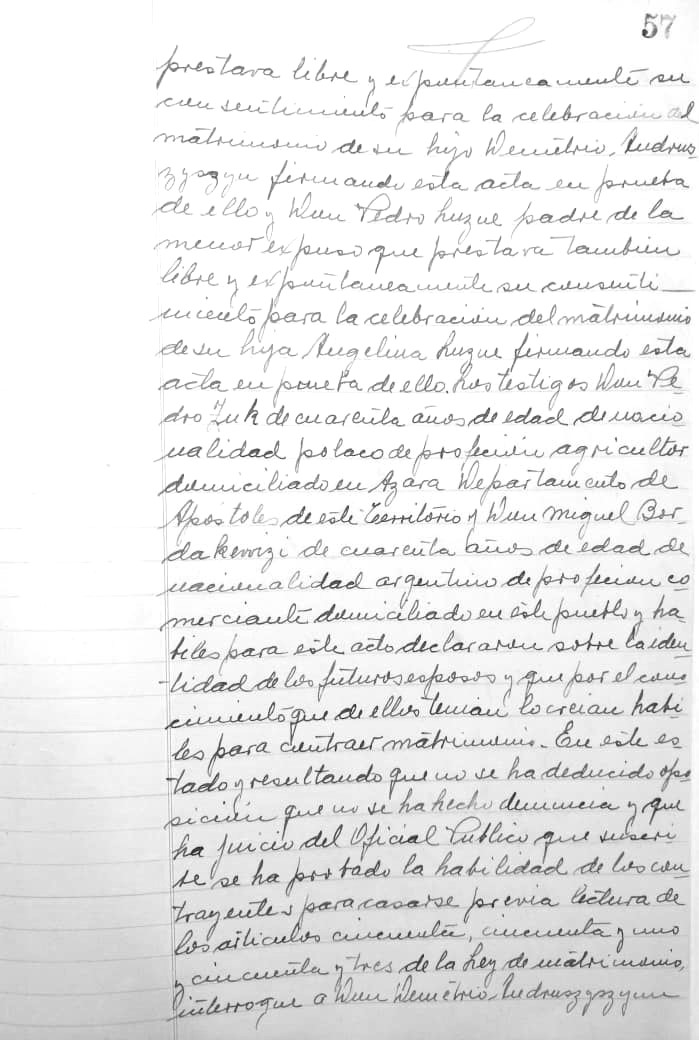 57
prestava libre y expontaneamente su
consentimiento para la celebracion del
matrimonio de su hijo Demétrio. Andrus-
zyszyn firmando esta acta en prueba
de ello y Don Pedro Luzue padre de la
menor expuso que prestava tambien
libre y expontaneamente su consenti—
miento para la celebracion del matrimonio
de su hija Angelina Luzue firmando esta
acta en prueba de ello. Los testigos Don Pe-
dro Zuk de cuarenta años de edad de nacio-
nalidad polaco de profeción agricultor
domiciliado en Azara Departamento de
Apostoles de este Territorio y Don Miguel Bor-
dakevvizi de cuarenta años de edad de
nacionalidad argentino de profecion co-
merciante domiciliado en este pueblo y ha
biles para este acto declararon sobre la iden-
tidad de los futuros esposos y que por el cono-
cimiento que de ellos tenian lo creian habi-
les para contraer matrimonio. En este es-
tado y resultando que no se ha deducido opo-
sición que no se ha hecho denuncia y que
ha juicio del Oficial Publico que suscri-
be se ha probado la habilidad de los con-
trayentes para casarse previa lectura de
los articulos cincuenta, cincuenta y uno
y cincuenta y tres de la Ley de matrimonio,
interrogue a Don Demétrio Andruszyszyn